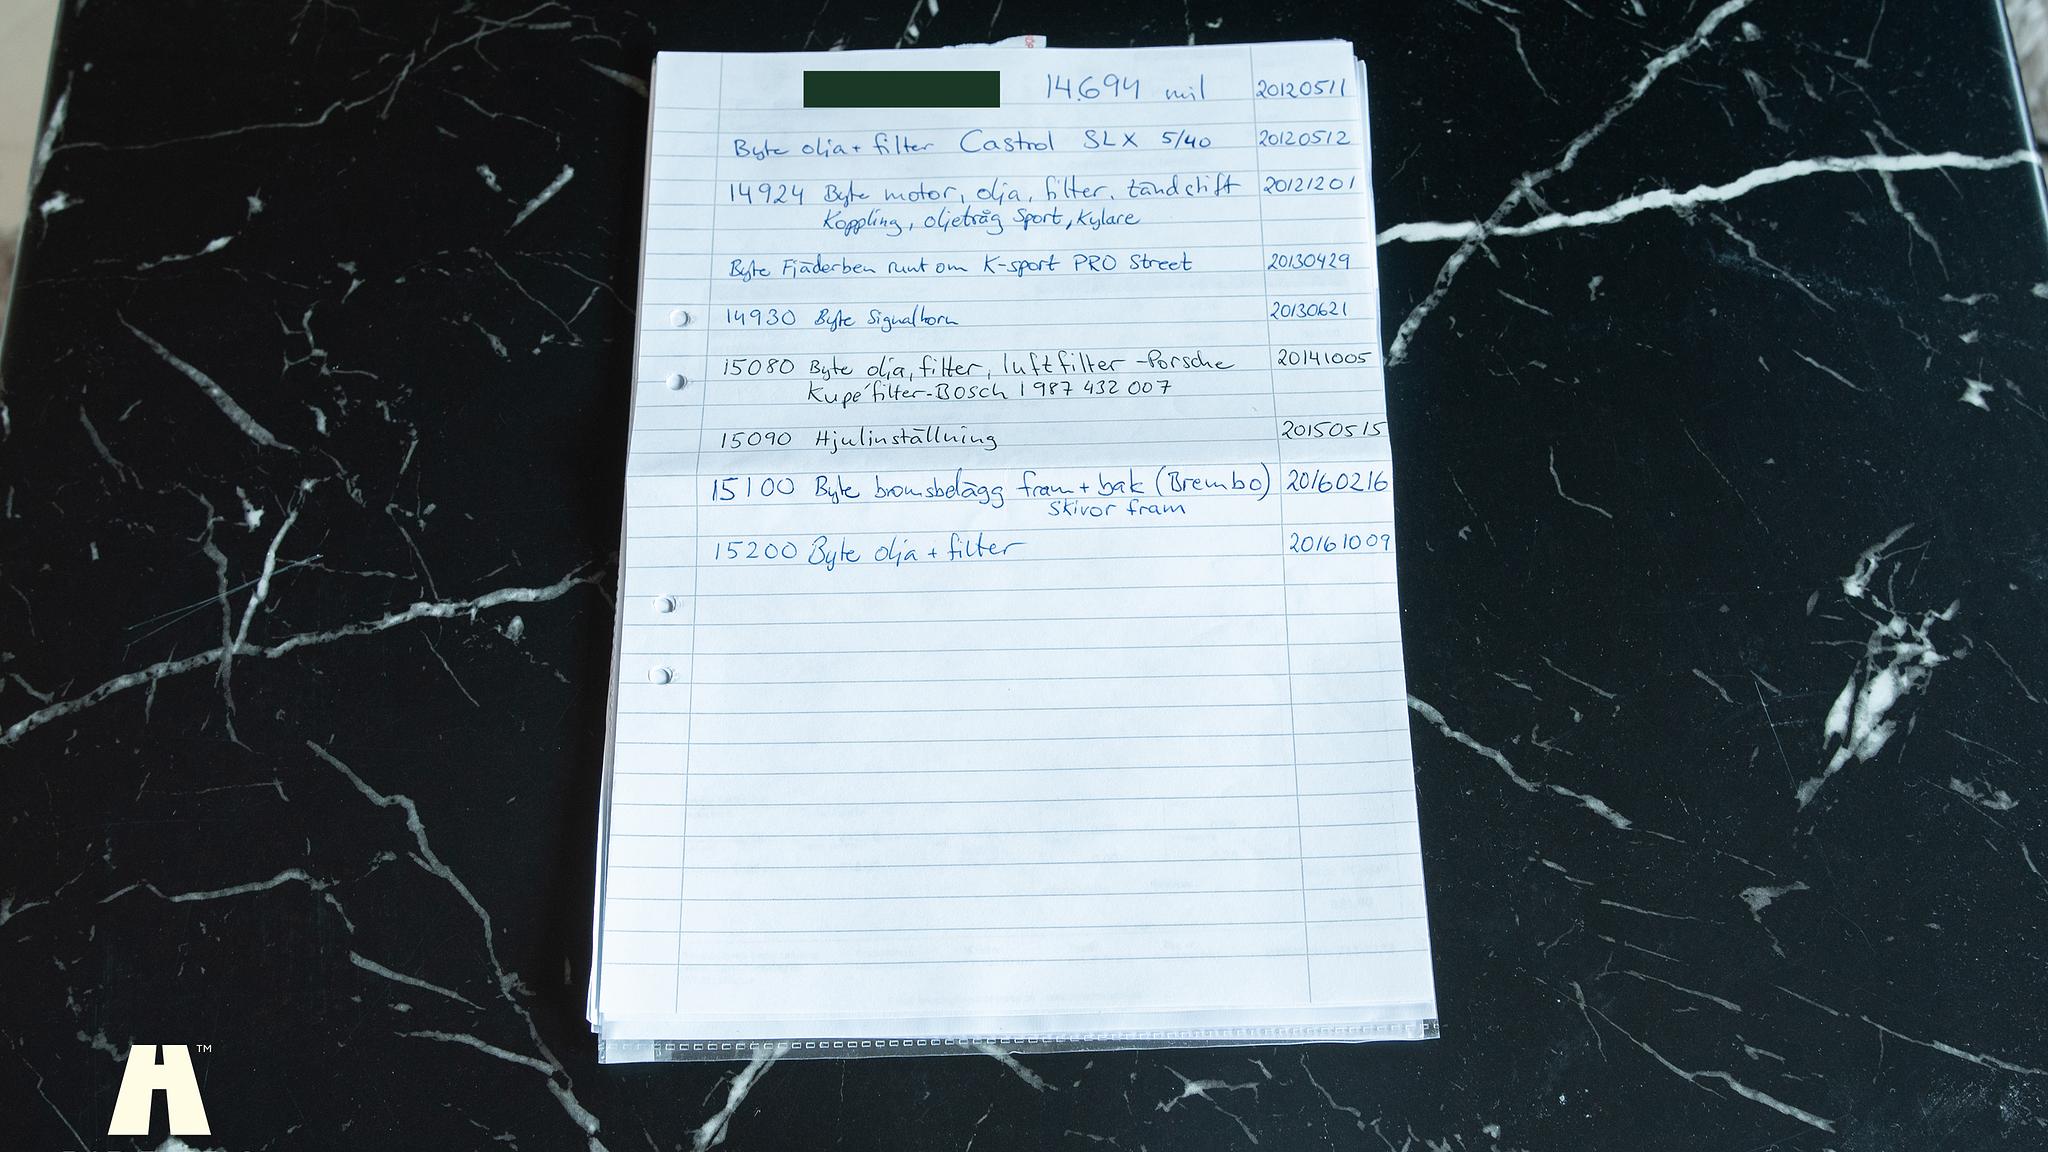 14.694 mil 20120511
Byte olja + filter Castrol SLX 5/40 20120512
14924 Byte motor, olja, filter, tändstift 20121201
Koppling, oljetråg Sport, Kylare
Byte Fjäderben runt om K-sport PRO Street 20130429
14930 Byte Signalhorn 20130621
15080 Byte olja, filter, luftfilter -Porsche 20141005
Kupéfilter-Bosch 1 987 432 007
15090 Hjulinställning 20150515
15100 Byte bromsbelägg fram + bak (Brembo) 20160216
skivor fram
15200 Byte olja + filter 20161009
H™